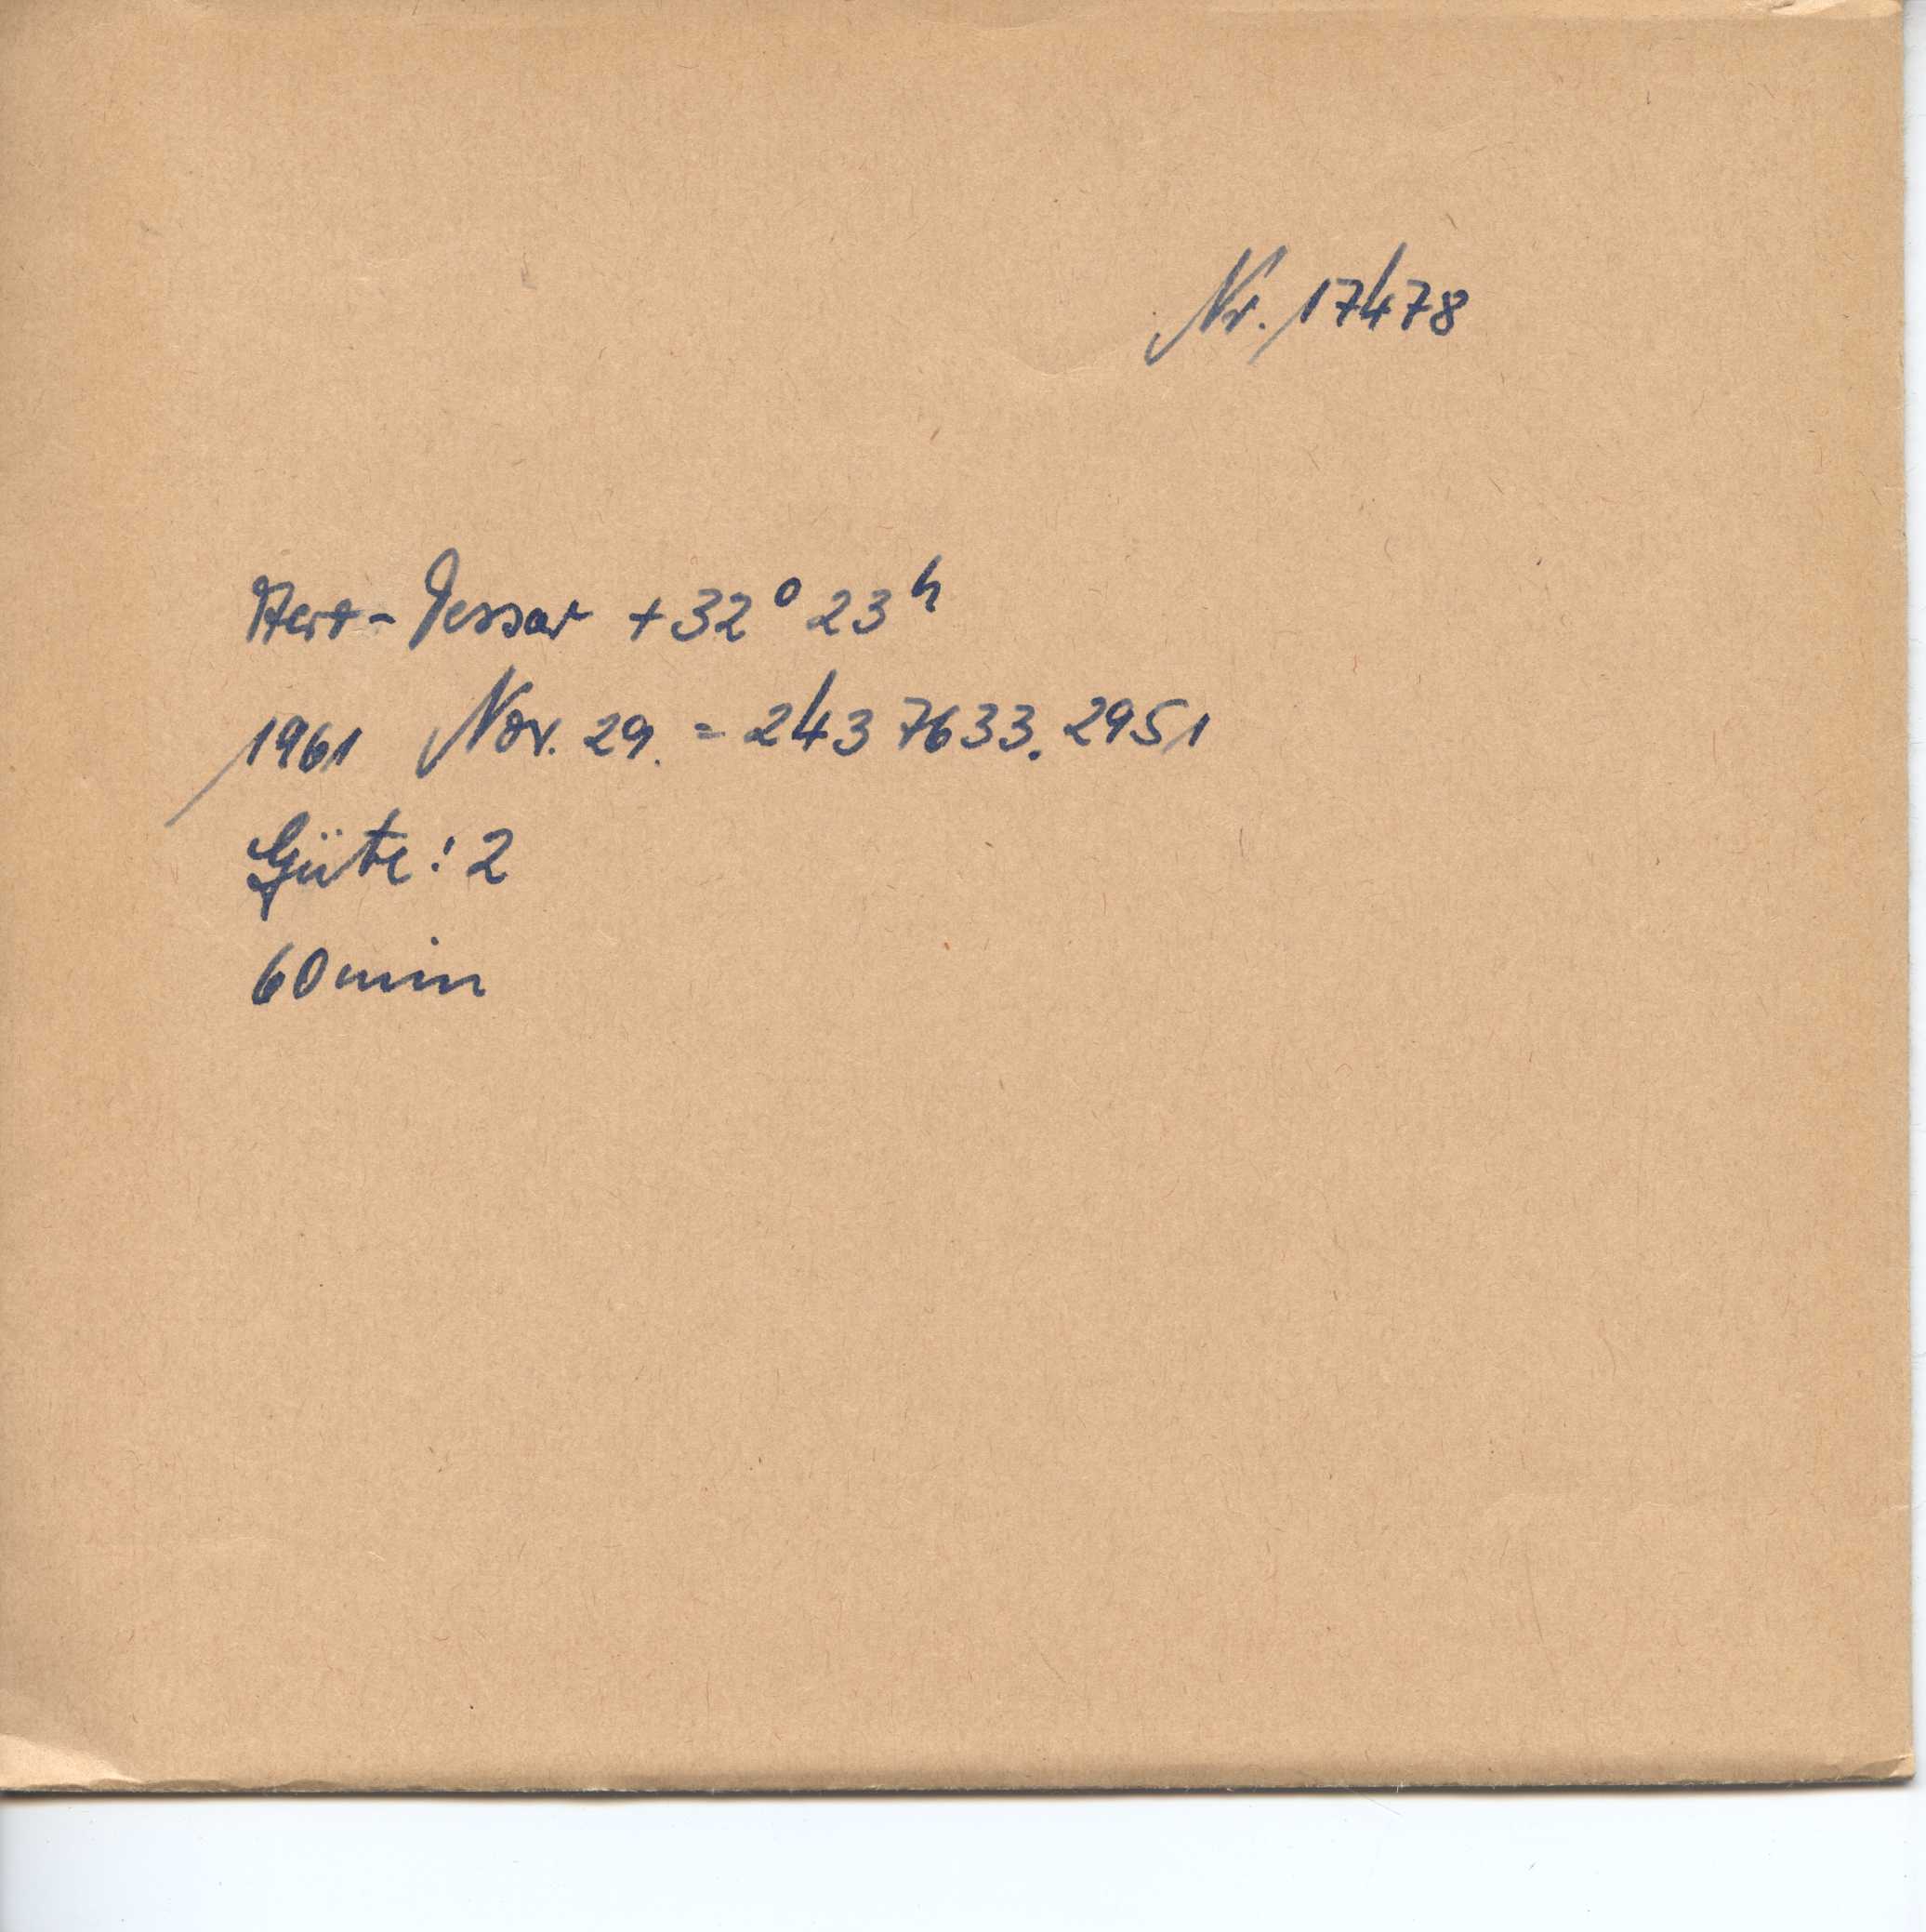 Nr. 17478
Aero-Tessar +32° 23ʰ
1961 Nov. 29. = 243 7633.2951
Güte: 2
60 min